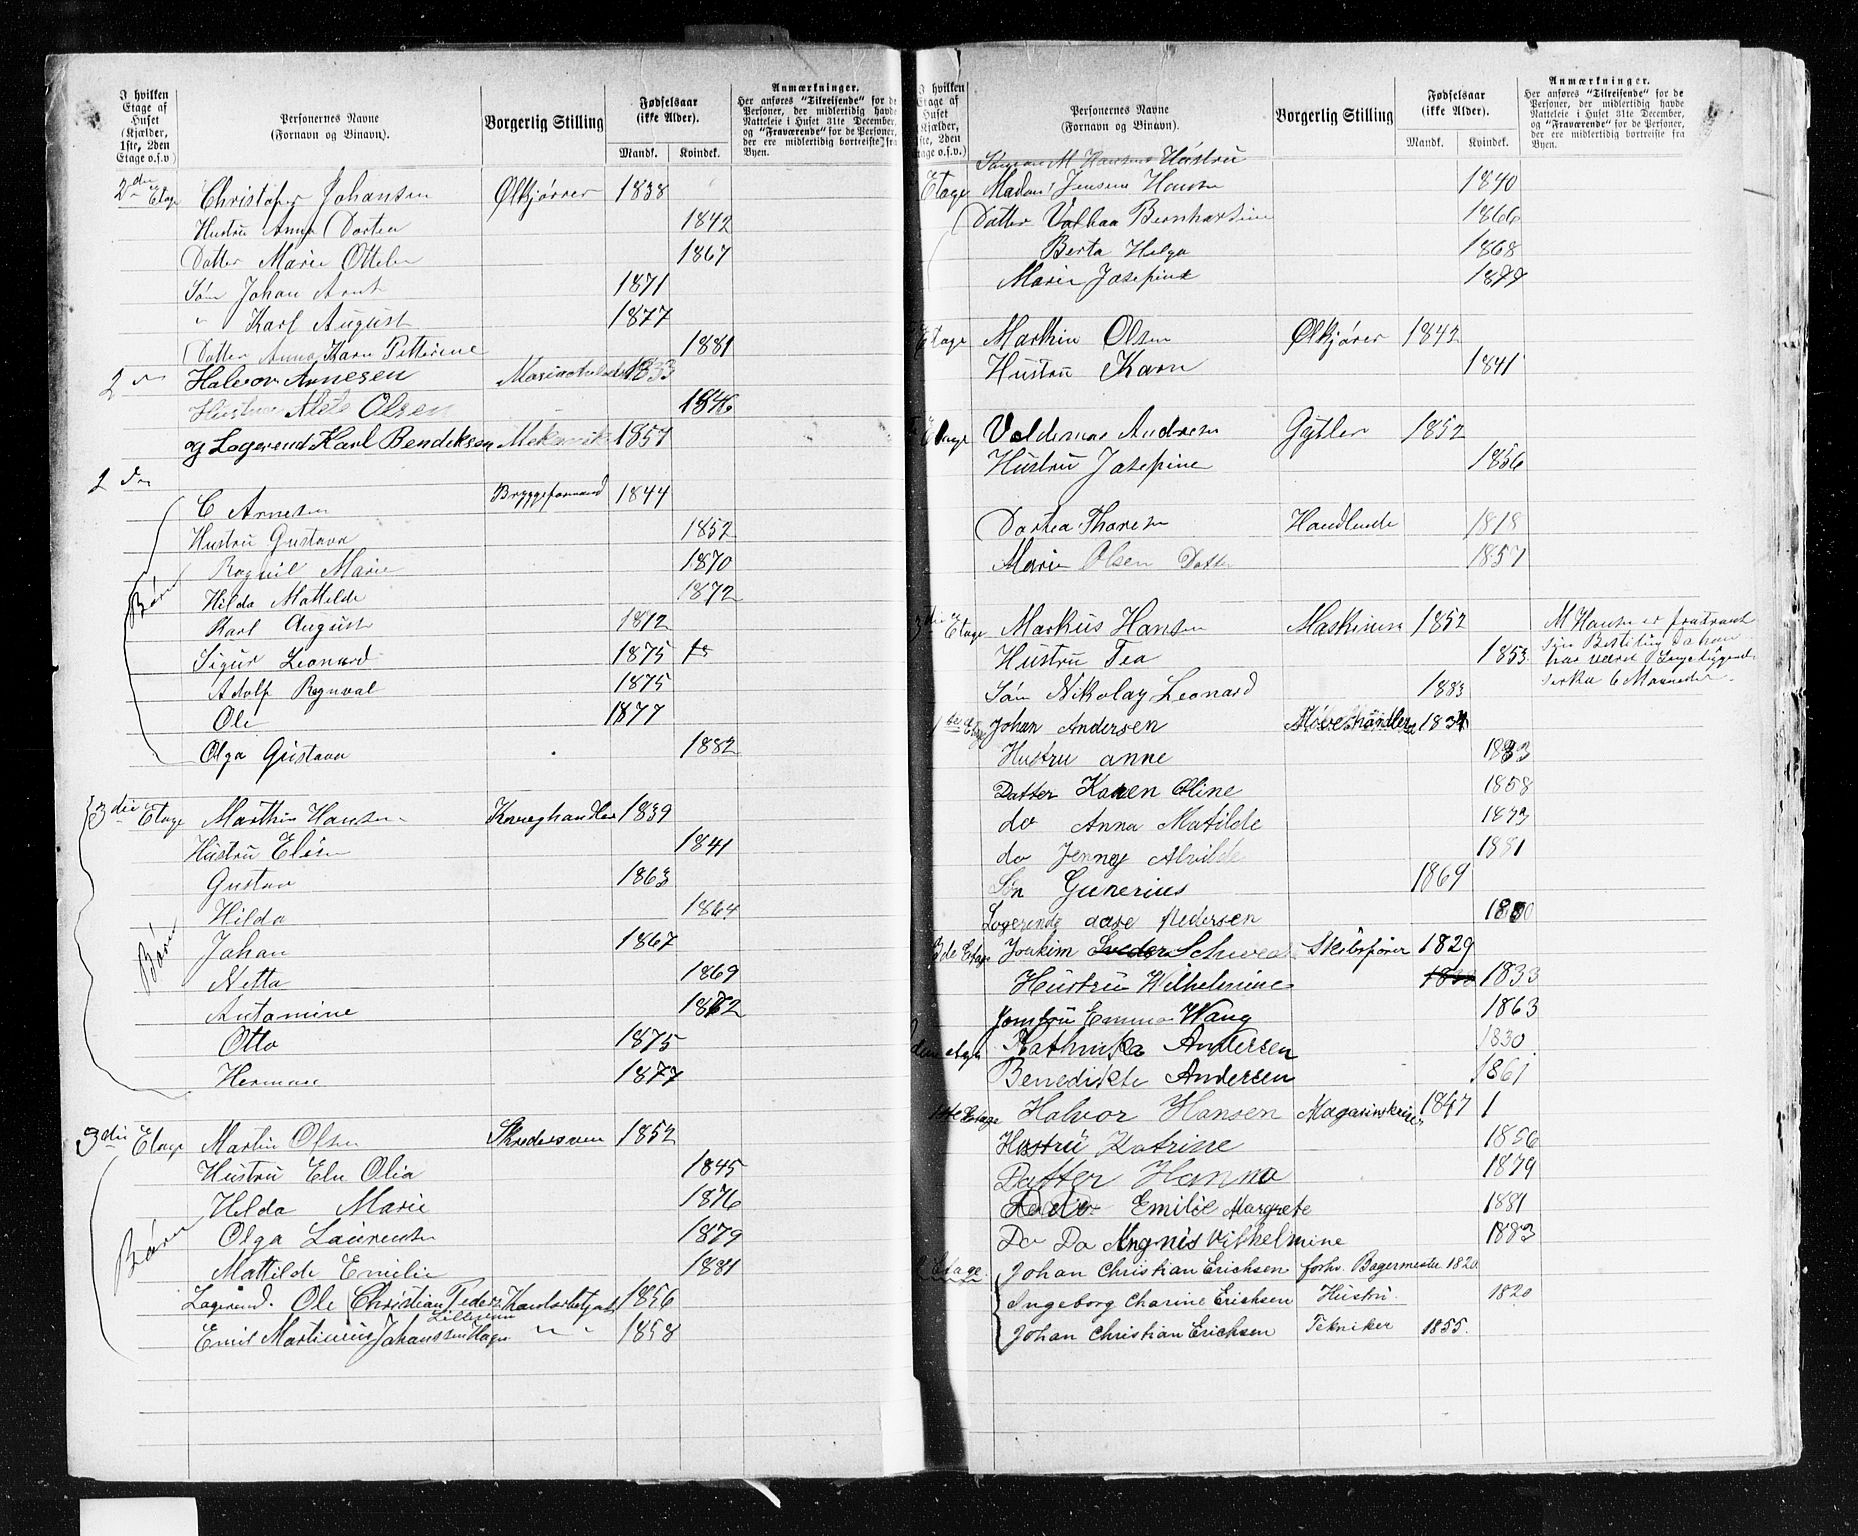 I hvilken
Etage af
Huset
(Kjælder,
1ste, 2den
Etage o.s.v)
Personernes Navne
(Fornavn og Binavn).
Borgerlig Stilling
Fødselsaar
(ikke Alder).
Mandk. Kvindek.
Anmærkninger.
Her anføres "Tilreisende" for de
Personer, der midlertidig havde
Natteleie i Huset 31te December,
og "Fraværende" for de Personer,
der ere midlertidig bortreiste fra
Byen.
2den Etage Christofer Johansen Ølkjører 1838
Hustru Anna Dortea 1842
Datter Marie Ottele 1867
Søn Johan Arnt 1871
" Karl August 1877
Datter Anna Karn Petterine 1881
2 " Halvor Arnesen 1833
Hustru Alete Olsen 1846
og Logerend Karl Bendiksen Mekanik 1857
2 d"
C Arnesen Bryggeformand 1844
Hustru Gustava 1852
Børn
Ragnil Marie 1870
Hilda Mattilde 1872
Karl August 1872
Sigur Leonard 1875
Adolf Regnval 1875
Ole 1877
Olga Gustava 1882
3die Etage Marthin Hansen Kreghandler 1839
Hustru Elise 1841
Børn
Gustav 1863
Hilda 1864
Johan 1867
Netta 1869
Antomine 1872
Otto 1875
Herman 1877
3die Etage Martin Olsen Skredersven 1852
Hustru Eln Olia 1845
Børn
Hilda Marie 1876
Olga Laurentse 1879
Mattilde Emilie 1881
Logerend. Ole Christian Peders Kontorbetjent 1856
Lillesven
Emil Martinius Johanssen Hagn " " 1858
I hvilken
Etage af
Huset
(Kjælder,
1ste, 2den
Etage o.s.v.)
Personernes Navne
(Fornavn og Binavn).
Borgerlig Stilling
Fødselsaar
(ikke Alder).
Mandk. Kvindek.
Anmærkninger.
Her anføres "Tilreisende" for de
Personer, der midlertidig havde
Natteleie i Huset 31te December,
og "Fraværende" for de Personer,
der ere midlertidig bortreiste fra
Byen.
M Hansens Hustru
Etage Madam Jensine Hansen 1840
Datter Valbaa Bernhardine 1866
Berta Helga 1868
Marie Josefine 1877
Etage Marthin Olsen Ølkjører 1842
Hustru Karn 1841
Etage Valdemar Andresen Gjytler 1852
Hustru Josefine 1856
Dortea Thoresen Handlende 1818
Marie Olsen Datter 1857
3die Etage Markus Hansen Maskinist 1852 M Hansen er fratraat
Hustru Tea 1853. sin Bestiling da han
har været Syge liggend
Søn Nikolay Leonard 1883 serka 6 Maaneder
1ste Etage Johan Andersen 1834
Hustru anne 1833
Datter Karen Oline 1858
do Anna Matilde 1873
do Jenney Alvilde 1881
Søn Gunerius 1869
Logerende aase Pedersen 1800
3de Etage Joakim Schwe Skibsfører 1829
Hustru Wilhelmine 1833
Jomfru Emma Wang 1863
2den etage Kathinka Andersen 1830
Benedikte Andersen 1861
1ste Etage Halvor Hansen Magasinskriver 1847 1
Hustru Katrine 1856
Datter Hanna 1879
Do do Emilie Margrete 1881
Do Do Angnis Vilhelmine 1883
Etage. Johan Christian Erichsen forhv. Bagermester 1820
Ingeborg Charine Erichsen Hustru. 1820
Johan Christian Erichsen Tekniker 1855.